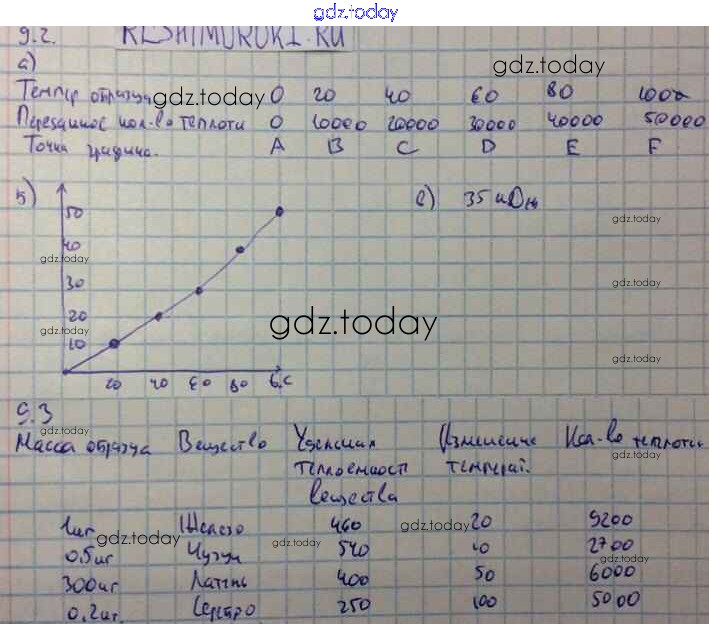 gdz.today
9.2. RESHIMUROKI.RU
а)
gdz.today
Темпер образца 0 20 40 60 80 100
gdz.today
Переданное кол-во теплоты 0 10000 20000 30000 40000 50000
Точка графика. A B C D E F
б) 50 с) 35 кДж
gdz.today
40
gdz.today
30 gdz.today
20 gdz.today
gdz.today
10 gdz.today
20 40 60 80 t,C
9.3
gdz.today
Масса образца Вещество Удельная Изменение Кол-во теплоты
gdz.today
теплоемкость температ.
вещества
1кг Железо 460 20 9200
gdz.today gdz.today
0.5кг Чугун 540 10 2700
gdz.today gdz.today
300кг Латунь 400 50 6000
gdz.today
0.2кг. Серебро 250 100 5000
gdz.today